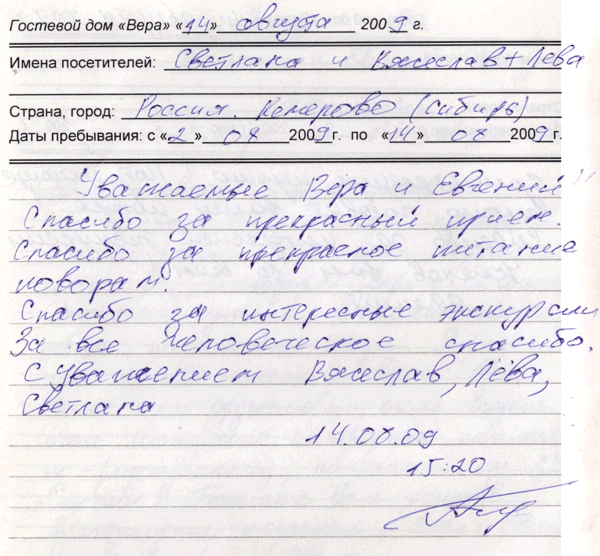 Гостевой дом «Вера» «14» августа 2009 г.
Имена посетителей: Светлана и Вячеслав + Лёва
Страна, город: Россия. Кемерово (Сибирь)
Даты пребывания: с «2» 08 2009 г. по «14» 08 2009 г.
Уважаемые Вера и Евгений!!
Спасибо за прекрасный прием.
Спасибо за прекрасное питание
поворам.
Спасибо за интересные экскурсии
За все человеческое спасибо.
С уважением Вячеслав, Лёва,
Светлана
14.08.09
15:20